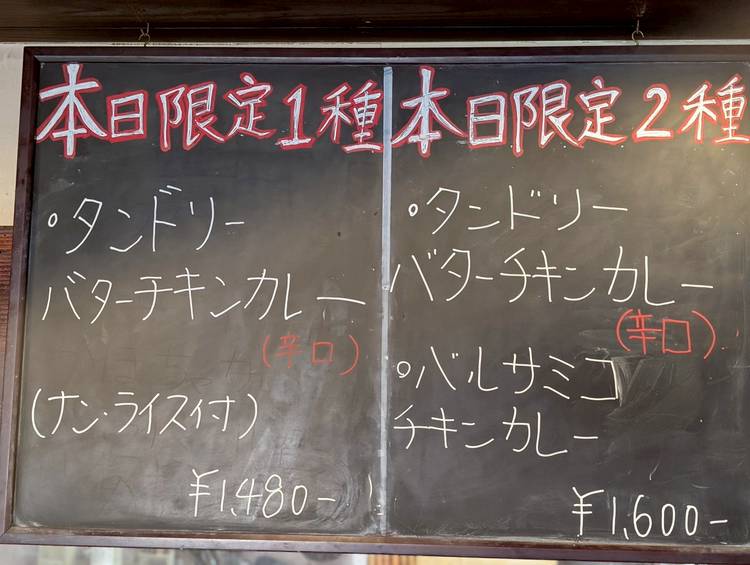 本日限定1種
○タンドリー
バターチキンカレー
(辛口)
(ナン・ライス付)
¥1,480-
本日限定2種
○タンドリー
バターチキンカレー
(辛口)
○バルサミコ
チキンカレー
¥1,600-